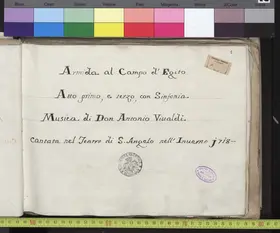 Armida al Campo d'Egito
Atto primo, e terzo, con Sinfonia
Musica di Don Antonio Vivaldi.
Cantata nel Teatro di S. Angelo nell'Inverno 1718